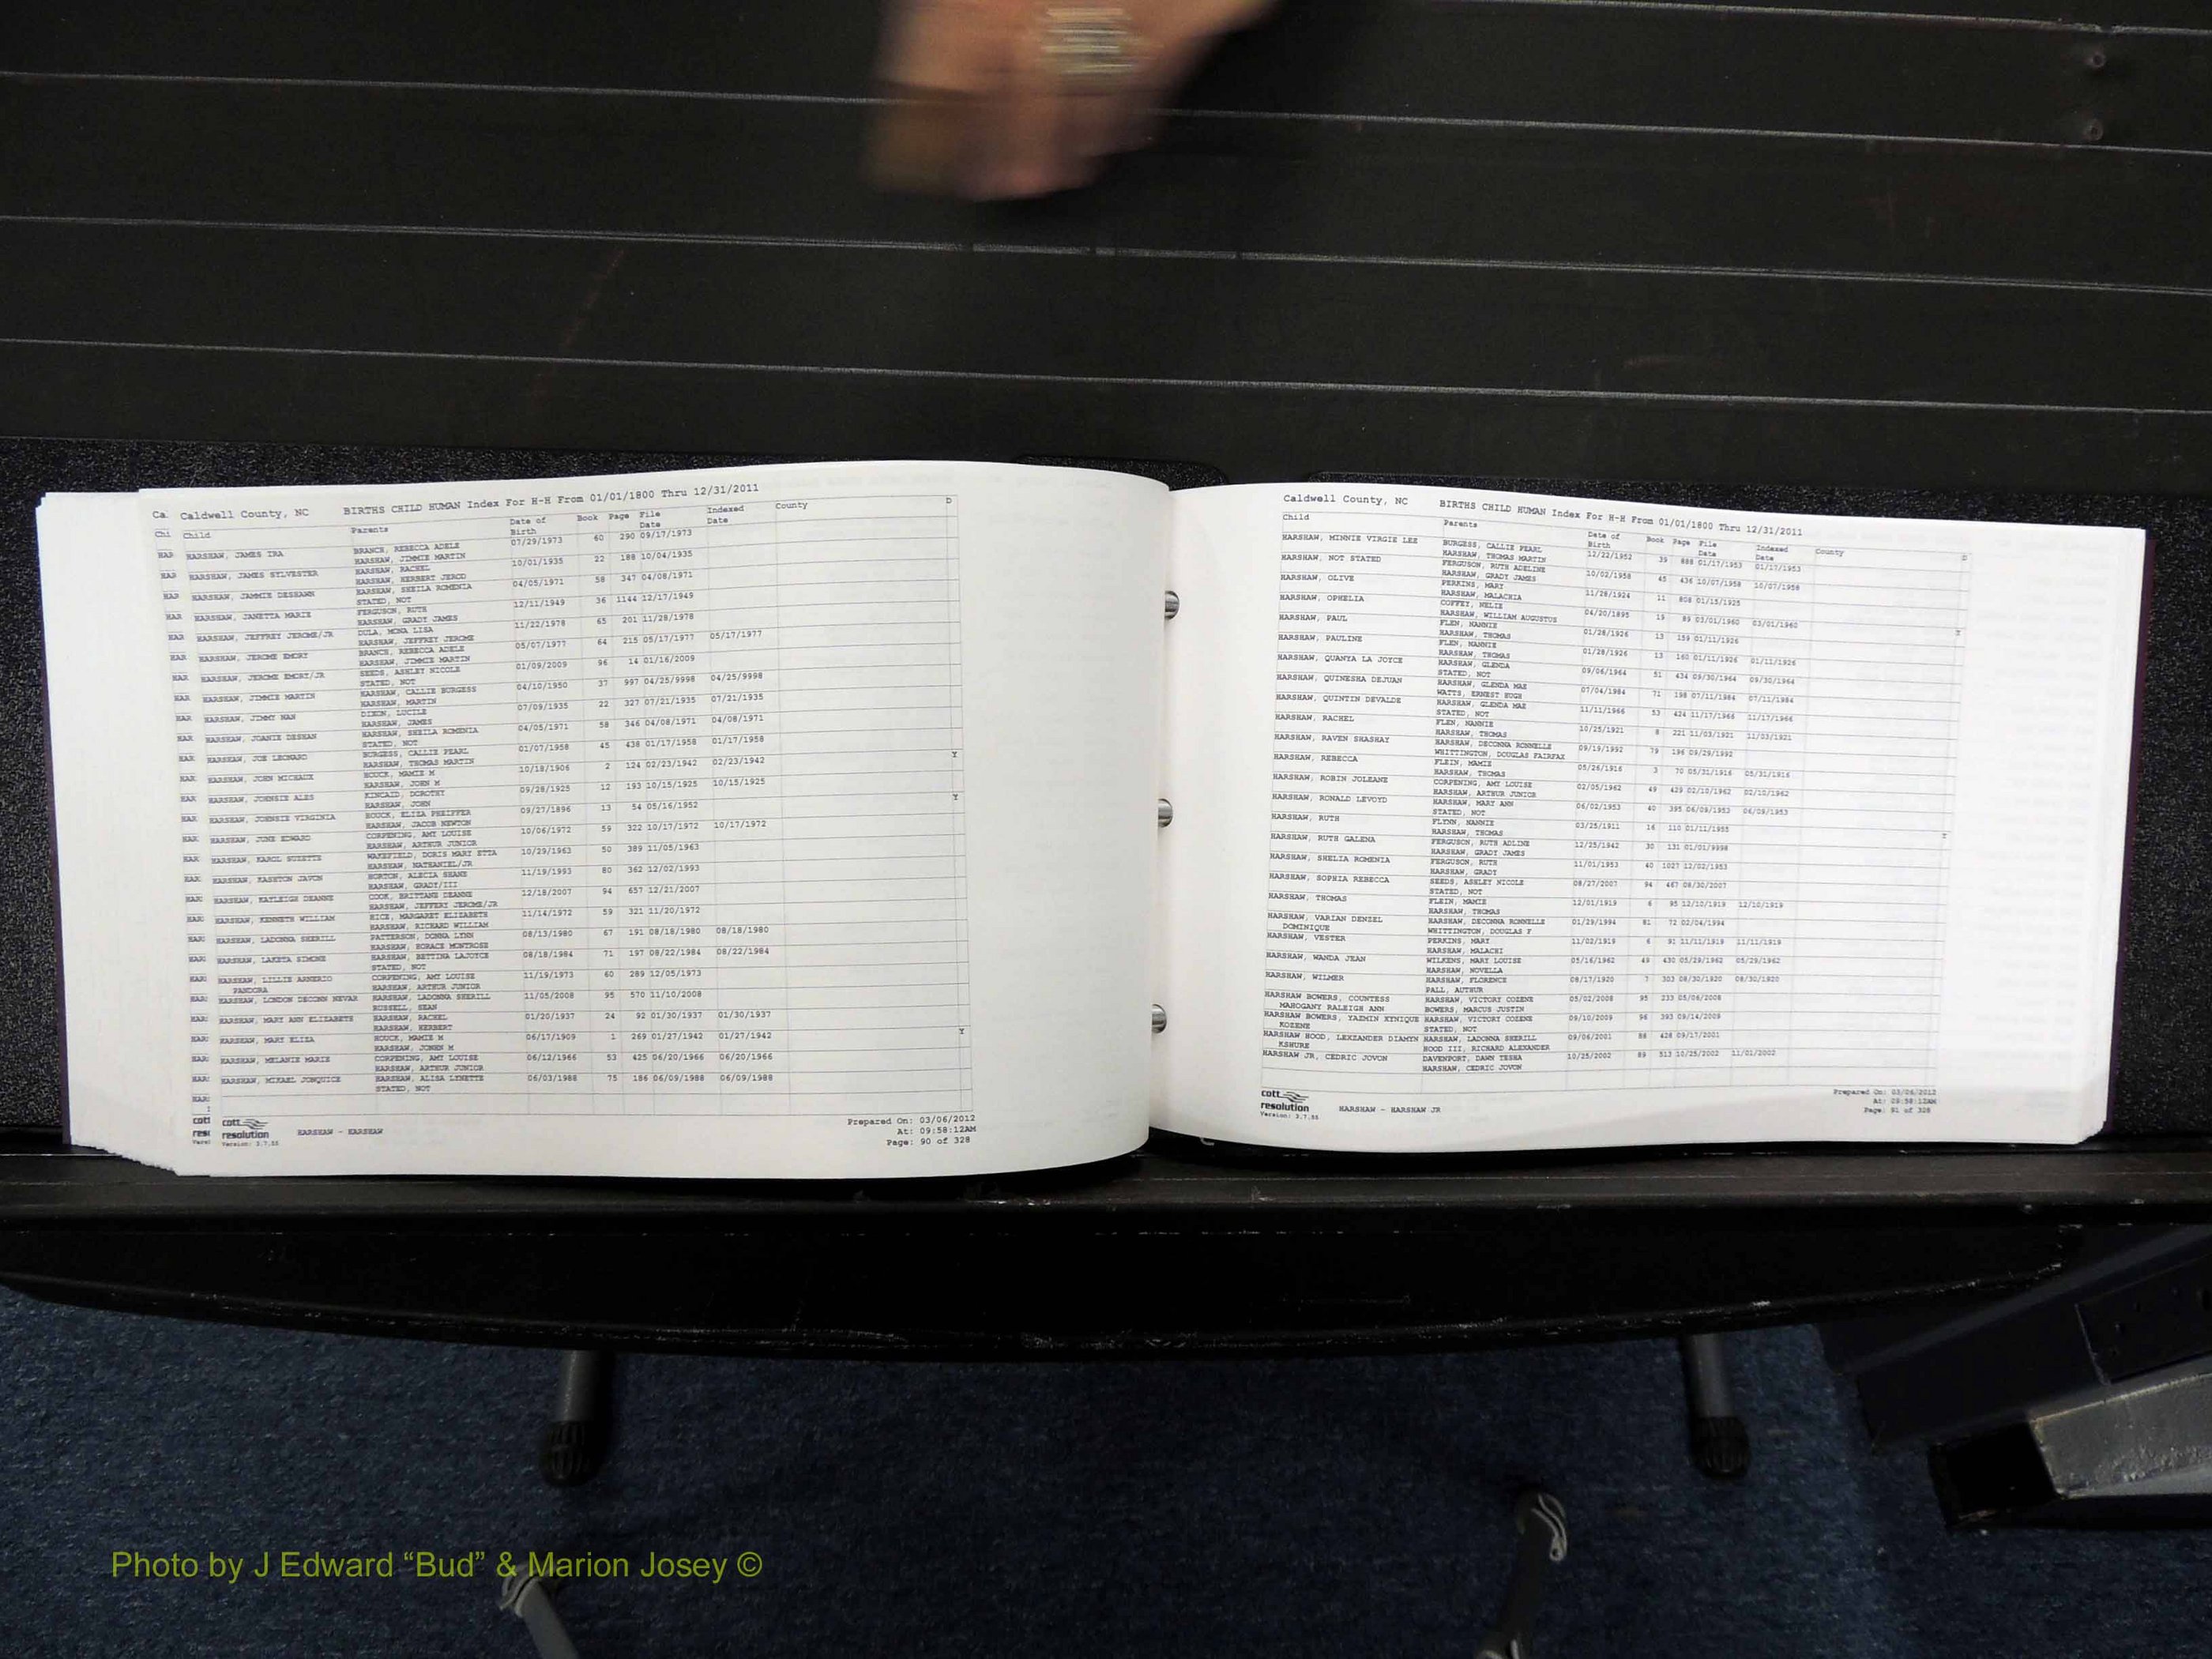 Ca.
Caldwell County, NC BIRTHS CHILD HUMAN Index For H-H From 01/01/1800 Thru 12/31/2011
Chi Child Parents Date of Birth Book Page File Date Indexed Date County D
HAR HARSHAW, JAMES IRA BRANCH, REBECCA ADELE 07/29/1973 60 290 09/17/1973
HARSHAW, JIMMIE MARTIN
HAR HARSHAW, JAMES SYLVESTER HARSHAW, RACHEL 10/01/1935 22 188 10/04/1935
HARSHAW, HERBERT JEROD
HAR HARSHAW, JAMMIE DESHAWN HARSHAW, SHEILA ROMENIA 04/05/1971 58 347 04/08/1971
STATED, NOT
HAR HARSHAW, JANETTA MARIE FERGUSON, RUTH 12/11/1949 36 1144 12/17/1949
HARSHAW, GRADY JAMES
HAR HARSHAW, JEFFREY JEROME/JR DULA, MONA LISA 11/22/1978 65 201 11/28/1978
HARSHAW, JEFFREY JEROME
HAR HARSHAW, JEROME EMORY BRANCH, REBECCA ADELE 05/07/1977 64 215 05/17/1977 05/17/1977
HARSHAW, JIMMIE MARTIN
HAR HARSHAW, JEROME EMORY/JR SEEDS, ASHLEY NICOLE 01/09/2009 96 14 01/16/2009
STATED, NOT
HAR HARSHAW, JIMMIE MARTIN HARSHAW, CALLIE BURGESS 04/10/1950 37 997 04/25/9998 04/25/9998
HARSHAW, MARTIN
HAR HARSHAW, JIMMY NAN DIXON, LUCILE 07/09/1935 22 327 07/21/1935 07/21/1935
HARSHAW, JAMES
HAR HARSHAW, JOANIE DESHAN HARSHAW, SHEILA ROMENIA 04/05/1971 58 346 04/08/1971 04/08/1971
STATED, NOT
HAR HARSHAW, JOE LEONARD BURGESS, CALLIE PEARL 01/07/1958 45 438 01/17/1958 01/17/1958
HARSHAW, THOMAS MARTIN
HAR HARSHAW, JOHN MICHAUX HOUCK, MAMIE M 10/18/1906 2 124 02/23/1942 02/23/1942 Y
HARSHAW, JOHN M
HAR HARSHAW, JOHNSIE ALES KINCAID, DOROTHY 09/28/1925 12 193 10/15/1925 10/15/1925
HARSHAW, JOHN
HAR HARSHAW, JOHNSIE VIRGINIA HOUCK, ELIZA PHEIFFER 09/27/1896 13 54 05/16/1952 Y
HARSHAW, JACOB NEWTON
HAR HARSHAW, JUNE EDWARD CORPENING, AMY LOUISE 10/06/1972 59 322 10/17/1972 10/17/1972
HARSHAW, ARTHUR JUNIOR
HAR HARSHAW, KAROL SUZETTE WAKEFIELD, DORIS MARY ETTA 10/29/1963 50 389 11/05/1963
HARSHAW, NATHANIEL/JR
HAR HARSHAW, KASHTON JAVON HORTON, ALECIA SHANE 11/19/1993 80 362 12/02/1993
HARSHAW, GRADY/III
HAR HARSHAW, KATLEIGH DEANNE COOK, BRITTANI DEANNE 12/18/2007 94 657 12/21/2007
HARSHAW, JEFFERY JEROME/JR
HAR HARSHAW, KENNETH WILLIAM RICE, MARGARET ELIZABETH 11/14/1972 59 321 11/20/1972
HARSHAW, RICHARD WILLIAM
HAR HARSHAW, LADONNA SHERILL PATTERSON, DONNA LYNN 08/13/1980 67 191 08/18/1980 08/18/1980
HARSHAW, HORACE MONTROSE
HAR HARSHAW, LAKETA SIMONE HARSHAW, BETTINA LAJOYCE 08/18/1984 71 197 08/22/1984 08/22/1984
STATED, NOT
HAR HARSHAW, LILLIE ARNERIO CORPENING, AMY LOUISE 11/19/1973 60 289 12/05/1973
PANDORA HARSHAW, ARTHUR JUNIOR
HAR HARSHAW, LONDON DECONN NEVAR HARSHAW, LADONNA SHERILL 11/05/2008 95 570 11/10/2008
RUSSELL, SEAN
HAR HARSHAW, MARY ANN ELIZABETH HARSHAW, RACHEL 01/20/1937 24 92 01/30/1937 01/30/1937
HARSHAW, HERBERT
HAR HARSHAW, MARY ELIZA HOUCK, MAMIE M 06/17/1909 1 269 01/27/1942 01/27/1942 Y
HARSHAW, JONEN M
HAR HARSHAW, MELANIE MARIE CORPENING, AMY LOUISE 06/12/1966 53 425 06/20/1966 06/20/1966
HARSHAW, ARTHUR JUNIOR
HAR HARSHAW, MIKAEL JONQUICE HARSHAW, ALISA LYNETTE 06/03/1988 75 186 06/09/1988 06/09/1988
STATED, NOT
HAR
cott cott
resolution
Version: 3.7.55
HARSHAW - HARSHAW
Prepared On: 03/06/2012
At: 09:58:12AM
Page: 90 of 328
Caldwell County, NC BIRTHS CHILD HUMAN Index For H-H From 01/01/1800 Thru 12/31/2011
Child Parents Date of Birth Book Page File Date Indexed Date County D
HARSHAW, MINNIE VIRGIE LEE BURGESS, CALLIE PEARL 12/22/1952 39 888 01/17/1953 01/17/1953
HARSHAW, THOMAS MARTIN
HARSHAW, NOT STATED FERGUSON, RUTH ADELINE 10/02/1958 45 436 10/07/1958 10/07/1958
HARSHAW, GRADY JAMES
HARSHAW, OLIVE PERKINS, MARY 11/28/1924 11 808 01/15/1925
HARSHAW, MALACHIA
HARSHAW, OPHELIA COFFEY, NELIE 04/20/1895 19 89 03/01/1960 03/01/1960 Y
HARSHAW, WILLIAM AUGUSTUS
HARSHAW, PAUL FLEN, NANNIE 01/28/1926 13 159 01/11/1926
HARSHAW, THOMAS
HARSHAW, PAULINE FLEN, NANNIE 01/28/1926 13 160 01/11/1926 01/11/1926
HARSHAW, THOMAS
HARSHAW, QUANYA LA JOYCE HARSHAW, GLENDA 09/06/1964 51 434 09/30/1964 09/30/1964
STATED, NOT
HARSHAW, QUINESHA DEJUAN HARSHAW, GLENDA MAE 07/04/1984 71 198 07/11/1984 07/11/1984
WATTS, ERNEST HUGH
HARSHAW, QUINTIN DEVALDE HARSHAW, GLENDA MAE 11/11/1966 53 424 11/17/1966 11/17/1966
STATED, NOT
HARSHAW, RACHEL FLEN, NANNIE 10/25/1921 8 221 11/03/1921 11/03/1921
HARSHAW, THOMAS
HARSHAW, RAVEN SHASHAY HARSHAW, DECONNA RONNELLE 09/19/1992 79 196 09/29/1992
WHITTINGTON, DOUGLAS FAIRFAX
HARSHAW, REBECCA FLEIN, MAMIE 05/26/1916 3 70 05/31/1916 05/31/1916
HARSHAW, THOMAS
HARSHAW, ROBIN JOLEANE CORPENING, AMY LOUISE 02/05/1962 49 429 02/10/1962 02/10/1962
HARSHAW, ARTHUR JUNIOR
HARSHAW, RONALD LEVOYD HARSHAW, MARY ANN 06/02/1953 40 395 06/09/1953 06/09/1953
STATED, NOT
HARSHAW, RUTH FLYNN, NANNIE 03/25/1911 16 110 01/11/1955 Y
HARSHAW, THOMAS
HARSHAW, RUTH GALENA FERGUSON, RUTH ADLINE 12/25/1942 30 131 01/01/9998
HARSHAW, GRADY JAMES
HARSHAW, SHELIA ROMENIA FERGUSON, RUTH 11/01/1953 40 1027 12/02/1953
HARSHAW, GRADY
HARSHAW, SOPHIA REBECCA SEEDS, ASHLEY NICOLE 08/27/2007 94 467 08/30/2007
STATED, NOT
HARSHAW, THOMAS FLEIN, MAMIE 12/01/1919 6 95 12/10/1919 12/10/1919
HARSHAW, THOMAS
HARSHAW, VARIAN DENZEL HARSHAW, DECONNA RONNELLE 01/29/1994 81 72 02/04/1994
DOMINIQUE WHITTINGTON, DOUGLAS F
HARSHAW, VESTER PERKINS, MARY 11/02/1919 6 91 11/11/1919 11/11/1919
HARSHAW, MALACHI
HARSHAW, WANDA JEAN WILKENS, MARY LOUISE 05/16/1962 49 430 05/29/1962 05/29/1962
HARSHAW, NOVELLA
HARSHAW, WILMER HARSHAW, FLORENCE 08/17/1920 7 303 08/30/1920 08/30/1920
PALL, AUTHUR
HARSHAW BOWERS, COUNTESS HARSHAW, VICTORY COZENE 05/02/2008 95 233 05/06/2008
MAHOGANY RALEIGH ANN BOWERS, MARCUS JUSTIN
HARSHAW BOWERS, YAZMIN KYNIQUE HARSHAW, VICTORY COZENE 09/10/2009 96 393 09/14/2009
KOZENE STATED, NOT
HARSHAW HOOD, LEKZANDER DIAMYN HARSHAW, LADONNA SHERILL 09/06/2001 88 428 09/17/2001
KSHURE HOOD III, RICHARD ALEXANDER
HARSHAW JR, CEDRIC JOVON DAVENPORT, DAWN TESHA 10/25/2002 89 513 10/25/2002 11/01/2002
HARSHAW, CEDRIC JOVON
cott
resolution
Version: 3.7.55
HARSHAW - HARSHAW JR
Prepared On: 03/06/2012
At: 09:58:12AM
Page: 91 of 328
Photo by J Edward “Bud” & Marion Josey ©